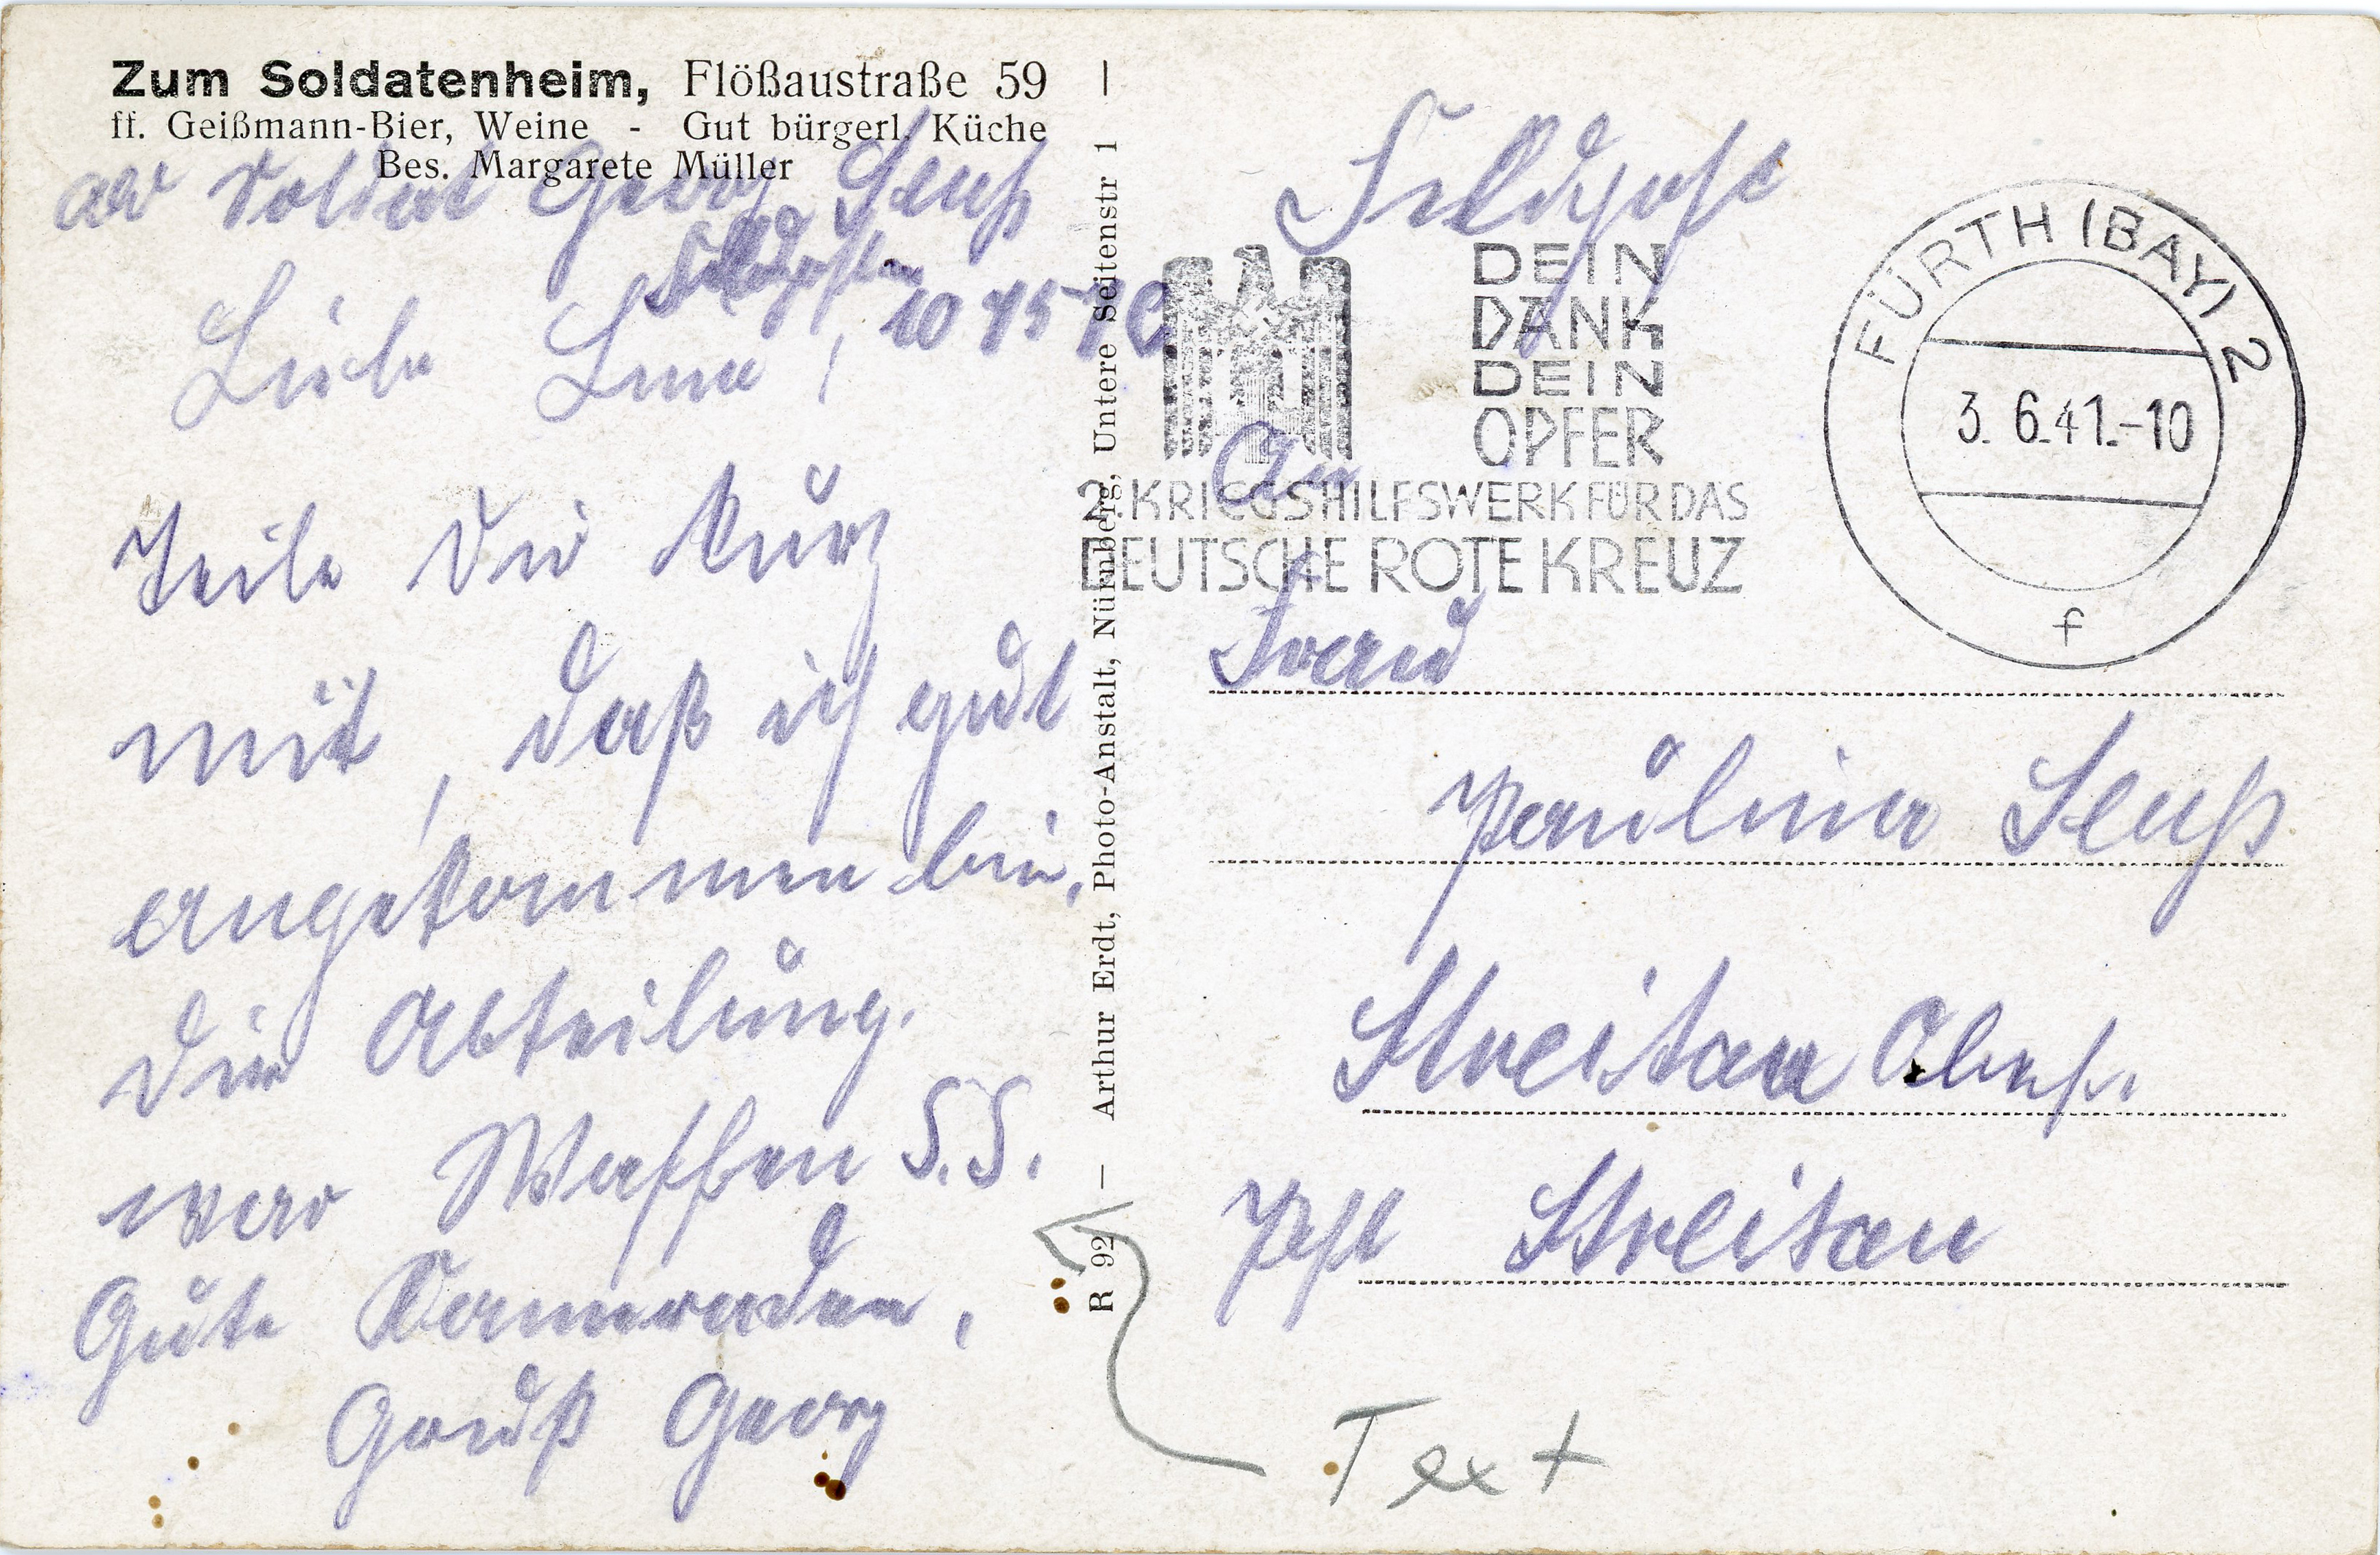 Zum Soldatenheim, Flößaustraße 59
ff. Geißmann-Bier, Weine - Gut bürgerl. Küche
Bes. Margarete Müller
Soldat Georg Seuß
Feldpostnr
Liebe Lina!
Teile Dir kurz
mit, daß ich gut
angekommen bin,
Die Abteilung.
war Waffen S.S.
Gute Kameraden,
Gruß Georg
R 92 — Arthur Erdt, Photo-Anstalt, Nürnberg, Untere Seitenstr 1 —
Feldpost
DEIN
DANK
DEIN
OPFER
2. KRIEGSHILFSWERK FÜR DAS
DEUTSCHE ROTE KREUZ
FÜRTH (BAY) 2
3. 6.41.-10
f
An
Frau
Paulina Seuß
Streitau
Pst Streitau
Text